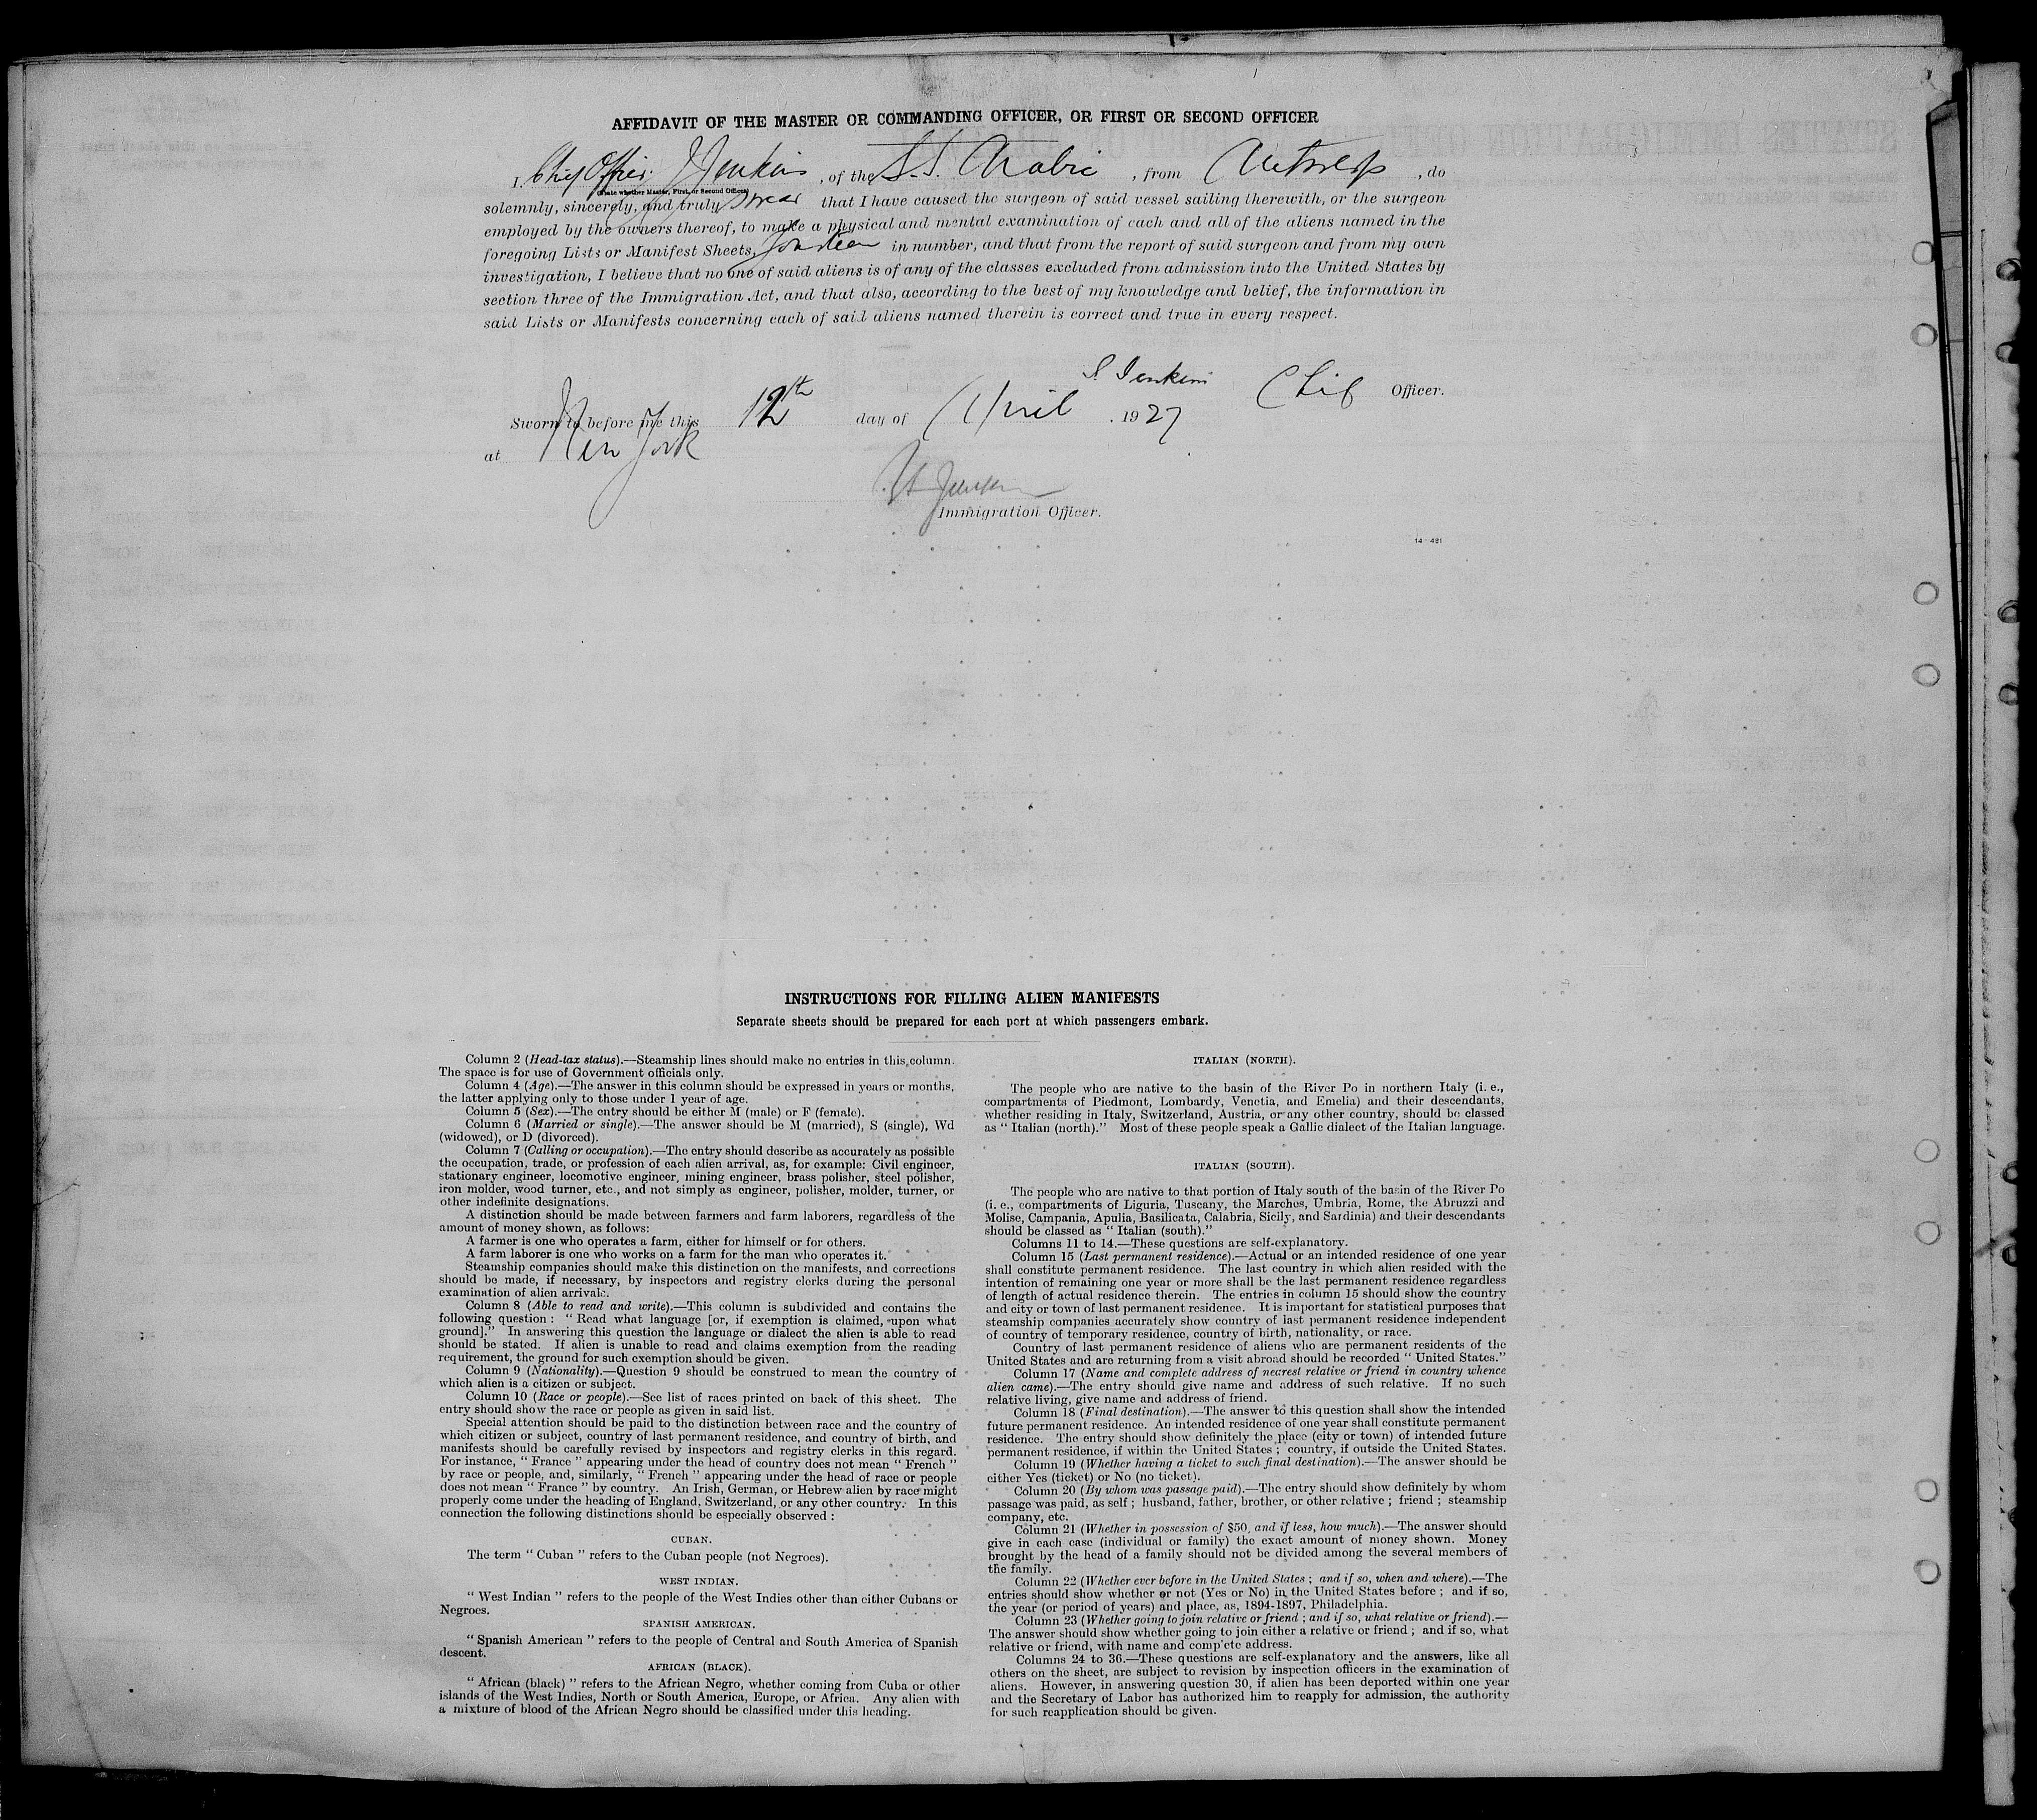 AFFIDAVIT OF THE MASTER OR COMMANDING OFFICER, OR FIRST OR SECOND OFFICER
I, Chief Officer J Jenkins, of the S.S. Arabic, from Antwerp, do
(State whether Master, First, or Second Officer)
solemnly, sincerely, and truly swear that I have caused the surgeon of said vessel sailing therewith, or the surgeon
employed by the owners thereof, to make a physical and mental examination of each and all of the aliens named in the
foregoing Lists or Manifest Sheets, in number, and that from the report of said surgeon and from my own
investigation, I believe that no one of said aliens is of any of the classes excluded from admission into the United States by
section three of the Immigration Act, and that also, according to the best of my knowledge and belief, the information in
said Lists or Manifests concerning each of said aliens named therein is correct and true in every respect.
Jenkins Chief Officer.
Sworn to before me this 12th day of April, 1927
at New York
Immigration Officer.
14—481
INSTRUCTIONS FOR FILLING ALIEN MANIFESTS
Separate sheets should be prepared for each port at which passengers embark.
Column 2 (Head-tax status).—Steamship lines should make no entries in this column.
The space is for use of Government officials only.
Column 4 (Age).—The answer in this column should be expressed in years or months,
the latter applying only to those under 1 year of age.
Column 5 (Sex).—The entry should be either M (male) or F (female).
Column 6 (Married or single).—The answer should be M (married), S (single), Wd
(widowed), or D (divorced).
Column 7 (Calling or occupation).—The entry should describe as accurately as possible
the occupation, trade, or profession of each alien arrival, as, for example: Civil engineer,
stationary engineer, locomotive engineer, mining engineer, brass polisher, steel polisher,
iron molder, wood turner, etc., and not simply as engineer, polisher, molder, turner, or
other indefinite designations.
A distinction should be made between farmers and farm laborers, regardless of the
amount of money shown, as follows:
A farmer is one who operates a farm, either for himself or for others.
A farm laborer is one who works on a farm for the man who operates it.
Steamship companies should make this distinction on the manifests, and corrections
should be made, if necessary, by inspectors and registry clerks during the personal
examination of alien arrivals.
Column 8 (Able to read and write).—This column is subdivided and contains the
following question: “Read what language [or, if exemption is claimed, upon what
ground].” In answering this question the language or dialect the alien is able to read
should be stated. If alien is unable to read and claims exemption from the reading
requirement, the ground for such exemption should be given.
Column 9 (Nationality).—Question 9 should be construed to mean the country of
which alien is a citizen or subject.
Column 10 (Race or people).—See list of races printed on back of this sheet. The
entry should show the race or people as given in said list.
Special attention should be paid to the distinction between race and the country of
which citizen or subject, country of last permanent residence, and country of birth, and
manifests should be carefully revised by inspectors and registry clerks in this regard.
For instance, “France” appearing under the head of country does not mean “French”
by race or people, and, similarly, “French” appearing under the head of race or people
does not mean “France” by country. An Irish, German, or Hebrew alien by race might
properly come under the heading of England, Switzerland, or any other country. In this
connection the following distinctions should be especially observed:
CUBAN.
The term “Cuban” refers to the Cuban people (not Negroes).
WEST INDIAN.
“West Indian” refers to the people of the West Indies other than either Cubans or
Negroes.
SPANISH AMERICAN.
“Spanish American” refers to the people of Central and South America of Spanish
descent.
AFRICAN (BLACK).
“African (black)” refers to the African Negro, whether coming from Cuba or other
islands of the West Indies, North or South America, Europe, or Africa. Any alien with
a mixture of blood of the African Negro should be classified under this heading.
ITALIAN (NORTH).
The people who are native to the basin of the River Po in northern Italy (i. e.,
compartments of Piedmont, Lombardy, Venetia, and Emelia) and their descendants,
whether residing in Italy, Switzerland, Austria, or any other country, should be classed
as “Italian (north).” Most of these people speak a Gallic dialect of the Italian language.
ITALIAN (SOUTH).
The people who are native to that portion of Italy south of the basin of the River Po
(i. e., compartments of Liguria, Tuscany, the Marches, Umbria, Rome, the Abruzzi and
Molise, Campania, Apulia, Basilicata, Calabria, Sicily, and Sardinia) and their descendants
should be classed as “Italian (south).”
Columns 11 to 14.—These questions are self-explanatory.
Column 15 (Last permanent residence).—Actual or an intended residence of one year
shall constitute permanent residence. The last country in which alien resided with the
intention of remaining one year or more shall be the last permanent residence regardless
of length of actual residence therein. The entries in column 15 should show the country
and city or town of last permanent residence. It is important for statistical purposes that
steamship companies accurately show country of last permanent residence independent
of country of temporary residence, country of birth, nationality, or race.
Country of last permanent residence of aliens who are permanent residents of the
United States and are returning from a visit abroad should be recorded “United States.”
Column 17 (Name and complete address of nearest relative or friend in country whence
alien came).—The entry should give name and address of such relative. If no such
relative living, give name and address of friend.
Column 18 (Final destination).—The answer to this question shall show the intended
future permanent residence. An intended residence of one year shall constitute permanent
residence. The entry should show definitely the place (city or town) of intended future
permanent residence, if within the United States; country, if outside the United States.
Column 19 (Whether having a ticket to such final destination).—The answer should be
either Yes (ticket) or No (no ticket).
Column 20 (By whom was passage paid).—The entry should show definitely by whom
passage was paid, as self; husband, father, brother, or other relative; friend; steamship
company, etc.
Column 21 (Whether in possession of $50, and if less, how much).—The answer should
give in each case (individual or family) the exact amount of money shown. Money
brought by the head of a family should not be divided among the several members of
the family.
Column 22 (Whether ever before in the United States; and if so, when and where).—The
entries should show whether or not (Yes or No) in the United States before; and if so,
the year (or period of years) and place, as, 1894-1897, Philadelphia.
Column 23 (Whether going to join relative or friend; and if so, what relative or friend).—
The answer should show whether going to join either a relative or friend; and if so, what
relative or friend, with name and complete address.
Columns 24 to 36.—These questions are self-explanatory and the answers, like all
others on the sheet, are subject to revision by inspection officers in the examination of
aliens. However, in answering question 30, if alien has been deported within one year
and the Secretary of Labor has authorized him to reapply for admission, the authority
for such reapplication should be given.